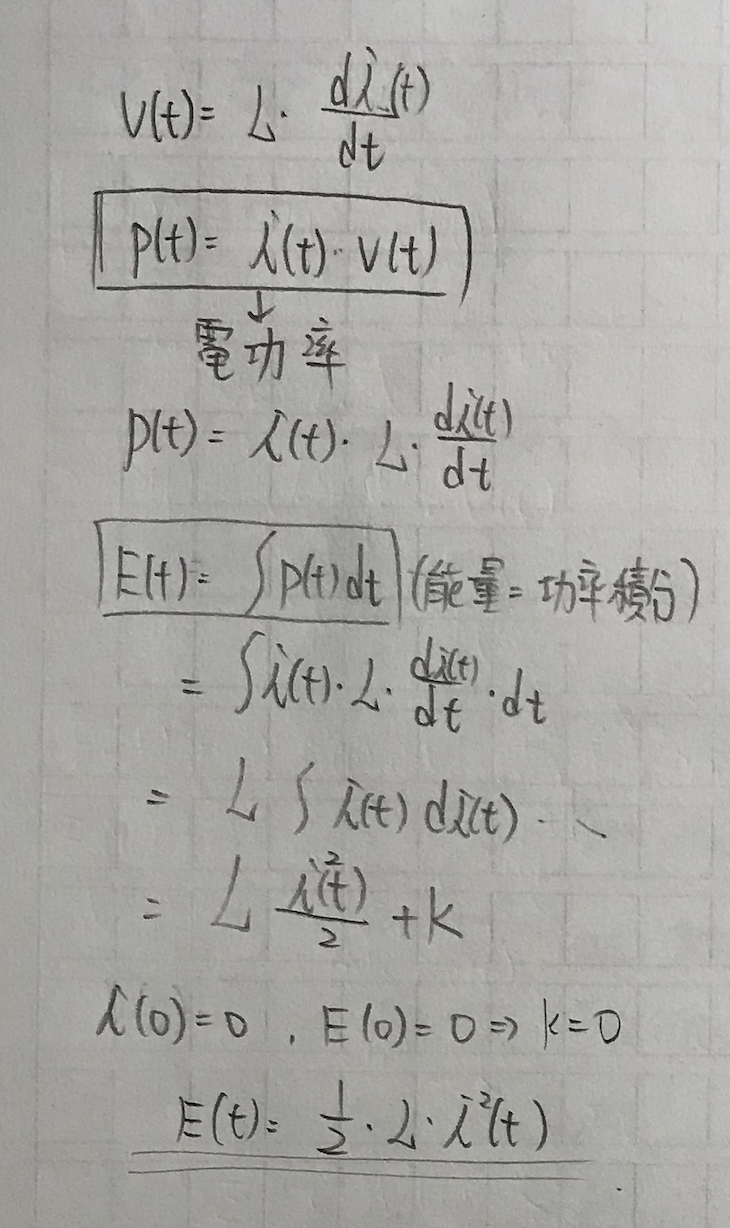 V(t)= L· di(t)/dt
p(t)= i(t)· V(t)
↓
電功率
p(t)= i(t)· L· di(t)/dt
E(t)= ∫p(t)dt (能量=功率積分)
= ∫i(t)· L· di(t)/dt · dt
= L ∫ i(t) di(t)
= L i²(t)/2 + k
i(0)=0 , E(0)=0 ⇒ k=0
E(t)= 1/2 · L · i²(t)